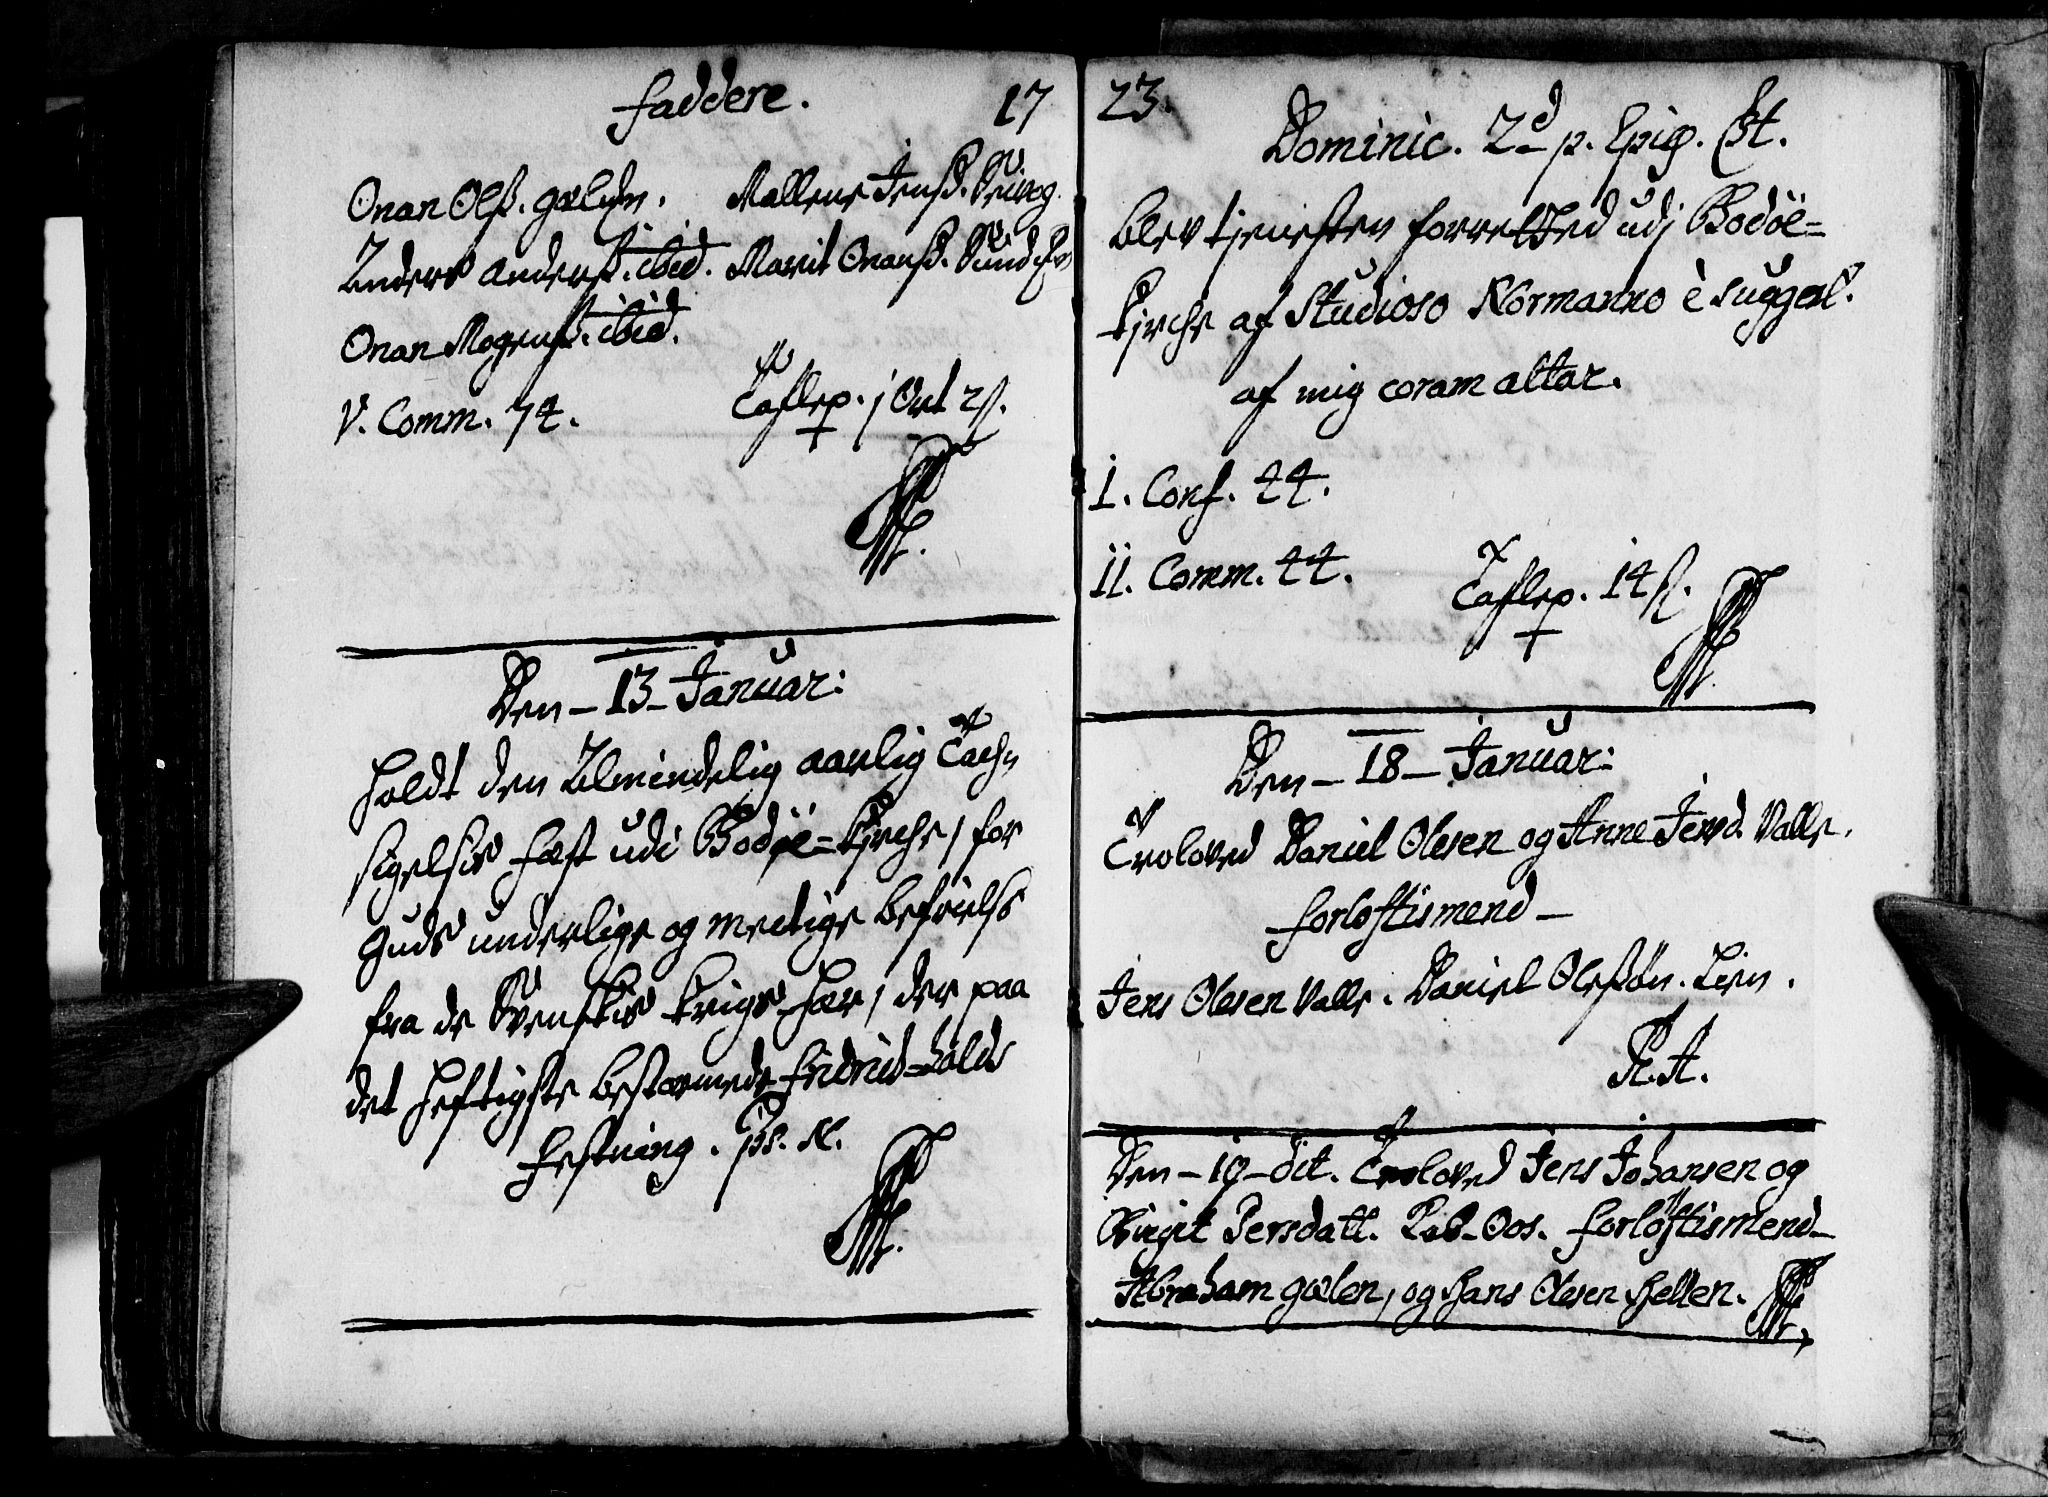 faddere.
17
Onan Olß. gælchn. Mallene Jensd. Seivog.
Anders Anderß. ibid. Marit Onansd. Sundchn
Onan Mogenß. ibid.
V. Comm. 74. Taflep. j Ort 2ß.
Den - 13 - Januar:
holdt den Almindelig aarlig Tach-
sigelsis fæst udi Bodøe-Kirche, for
Guds underlige og mectige befrielse
fra de Svenskis Krigs-hær, der paa
det heftigste bestormede Fridrichs-halds
festning. ps. N.
23.
Dominic. 2d p. Epip. Chr.
blev tjenesten forrettted udj Bodöe-
Kirche af Studioso Normanno è suggest.
af mig coram altar.
I. Conf. 44.
II. Comm. 44. Taflep. 14ß.
Den - 18 - Januar:
Troloved Daniel Olesen og Anne Jensd. Valle.
forloftismend -
Jens Olesen Valle. Daniel Oleßøn. Lien.
R. A.
Den - 19 - dit. Troloved Jens Johansen og
Birgit Persdatt. Forlöftismend -
Abraham gælen, og Hans Olesen Hellen.